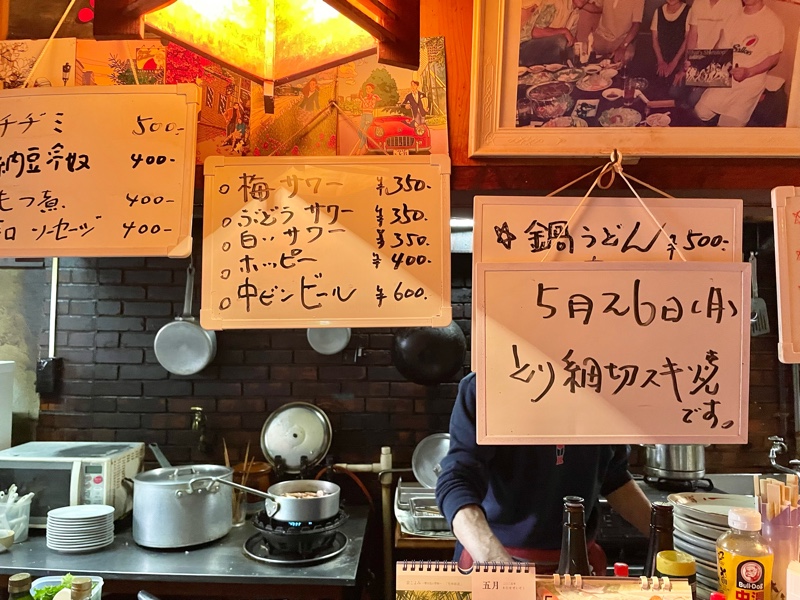 チヂミ 500-
納豆冷奴 400-
もつ煮. 400-
ソーセージ 400-
○ 梅サワー ¥350-
○ ぶどうサワー ¥350-
○ 白いサワー ¥350-
○ ホッピー ¥400-
○ 中ビンビール ¥600-
☆ 鍋うどん ¥500-
5月26日(月)
とり細切スキ焼き
です。
五月
Bull-Dog
中濃